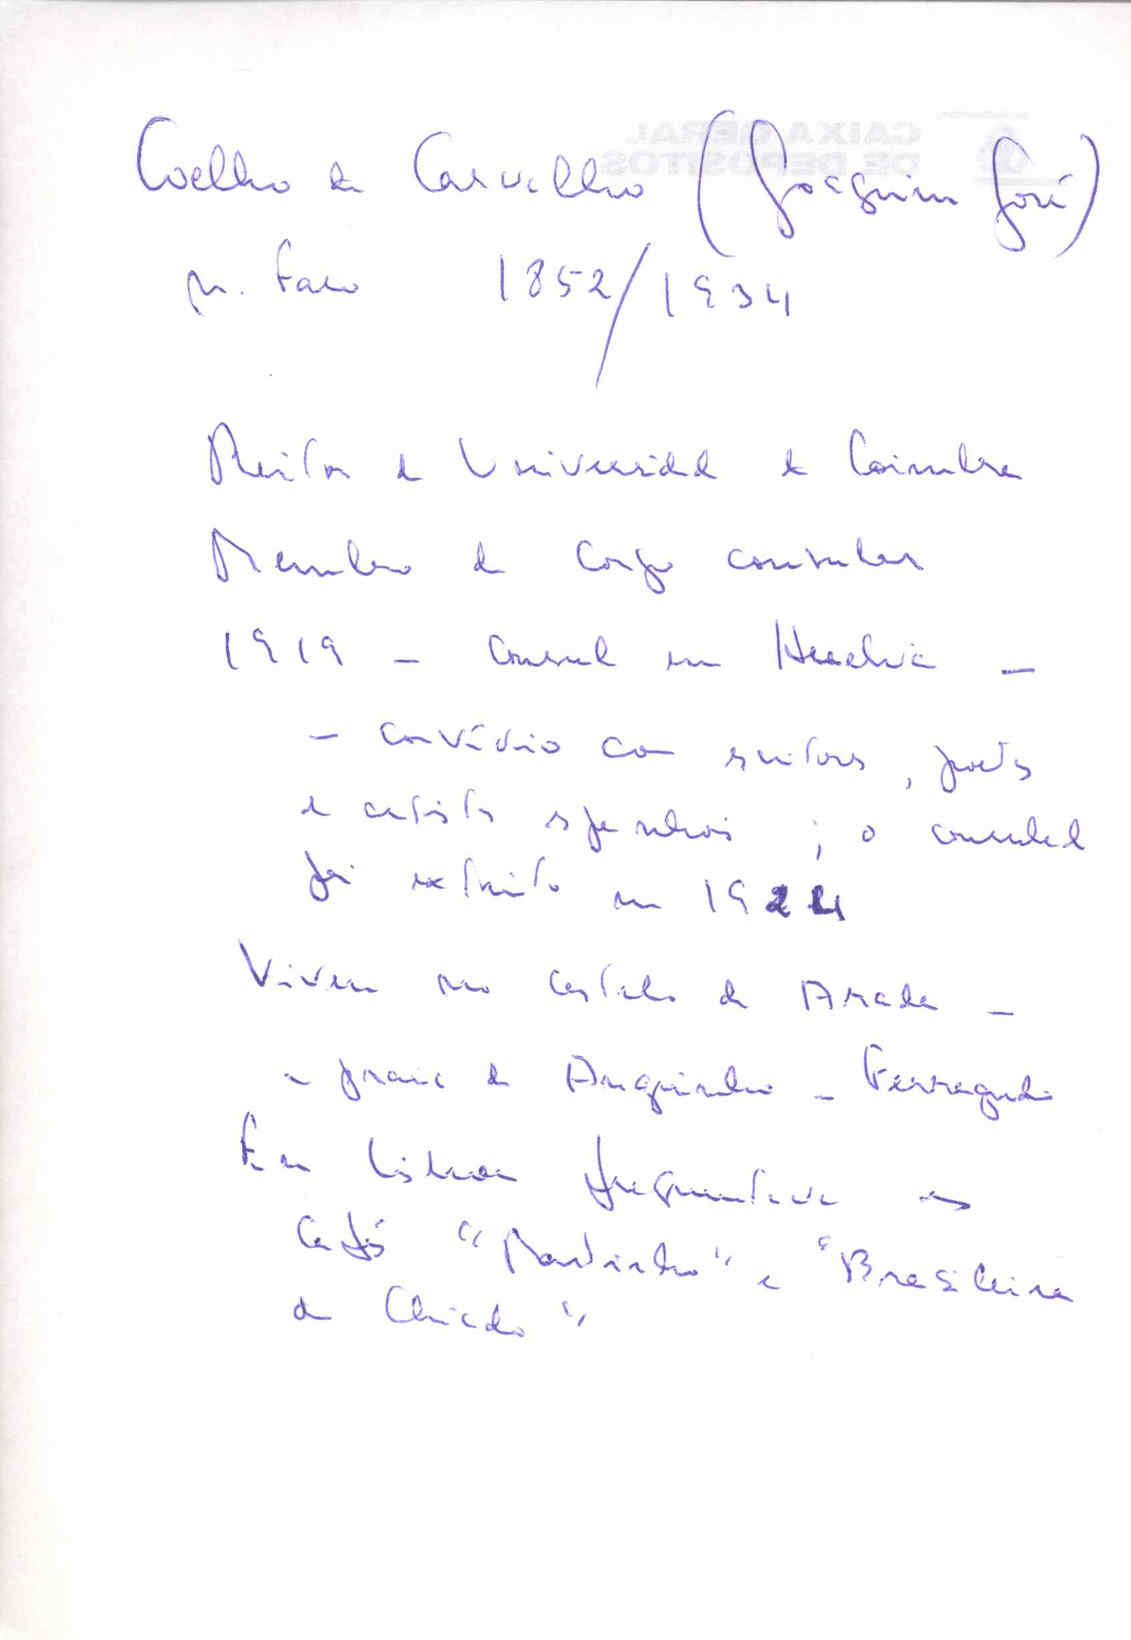 Coelho de Carvalho (Joaquim José)
n. Faro 1852/1934
Reitor da Universidade de Coimbra
Membro do Corpo consular
1919 - Consul em Huelva -
- convívio com escritores, poetas
e artistas espanhois; o consulado
foi extinto em 1924
Viveu no castelo de Arade -
- praia de Angrinha - Ferragudo
Em Lisboa frequentava os
Cafés "Martinho" e "Brasileira
do Chiado"
CAIXA GERAL
DE DEPOSITOS